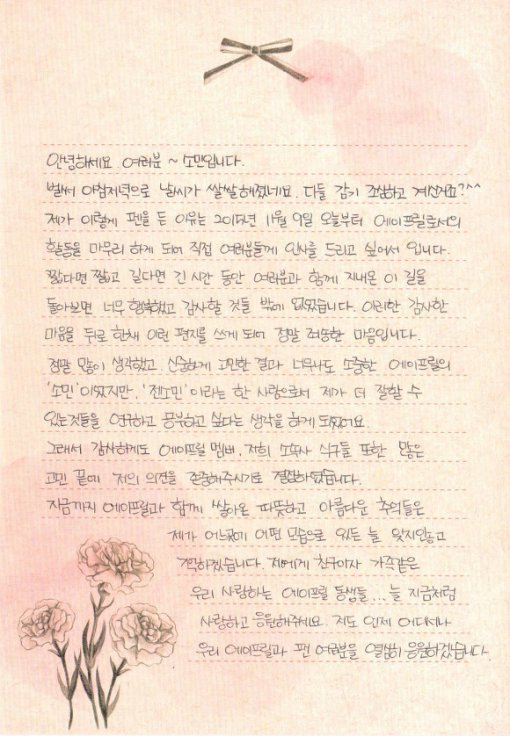 안녕하세요 여러분 ~ 소민입니다.
벌써 아침저녁으로 날씨가 쌀쌀해졌네요. 다들 감기 조심하고 계신거죠?^^
제가 이렇게 펜을 든 이유는 2015년 11월 9일 오늘부터 에이프릴로서의
활동을 마무리 하게 되어 직접 여러분들께 인사를 드리고 싶어서 입니다.
짧다면 짧고 길다면 긴 시간 동안 여러분과 함께 지내온 이 길을
돌아보면 너무 행복했고 감사할 것들 밖에 없었습니다. 이러한 감사한
마음을 뒤로 한채 이런 편지를 쓰게 되어 정말 죄송한 마음입니다.
정말 많이 생각했고, 신중하게 고민한 결과 너무나도 소중한 에이프릴의
'소민'이었지만, '전소민'이라는 한 사람으로서 제가 더 잘할 수
있는것들을 연구하고 공부하고 싶다는 생각을 하게 되었어요.
그래서 감사하게도 에이프릴 멤버, 저희 소속사 식구들 또한 많은
고민 끝에 저의 의견을 존중해주시기로 결정하였습니다.
지금까지 에이프릴과 함께 쌓아온 따뜻하고 아름다운 추억들은
제가 어느곳에 어떤 모습으로 있든 늘 잊지않고
기억하겠습니다. 저에게 친구이자 가족같은
우리 사랑하는 에이프릴 동생들... 늘 지금처럼
사랑하고 응원해주세요. 저도 언제 어디서나
우리 에이프릴과 팬 여러분을 열심히 응원하겠습니다